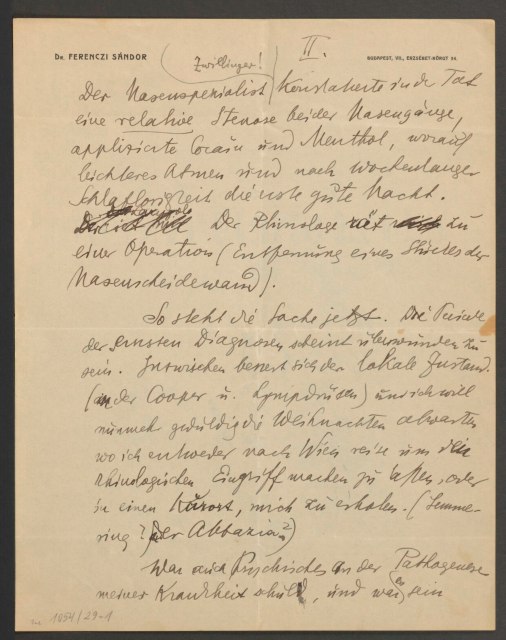 Dr. FERENCZI SÁNDOR
BUDAPEST, VII., ERZSÉBET-KÖRÚT 54.
II.
Zwillinge!
Der Nasenspezialist konstatierte in der Tat
eine relative Stenose beider Nasengänge,
applizierte Cocain und Menthol, worauf
leichteres Atmen und nach wochenlanger
Schlaflosigkeit die erste gute Nacht.
Der Rhinologe rät zu
einer Operation (Entfernung eines Stückes der
Nasenscheidewand).
So steht die Sache jetzt. Die Periode
der ernsten Diagnosen scheint überwunden zu
sein. Inzwischen bessert sich der lokale Zustand
(an der Cooper u. Lymphdrüsen) und ich will
nunmehr geduldig die Weihnachten abwarten
wo ich entweder nach Wien reise um den
rhinologischen Eingriff machen zu lassen, oder
in einen Kurort, mich zu erholen. (Semme-
ring? oder Abbazia?)
War auch Psychisches an der Pathogenese
meiner Krankheit schuld, und war es ein
1854/29-1